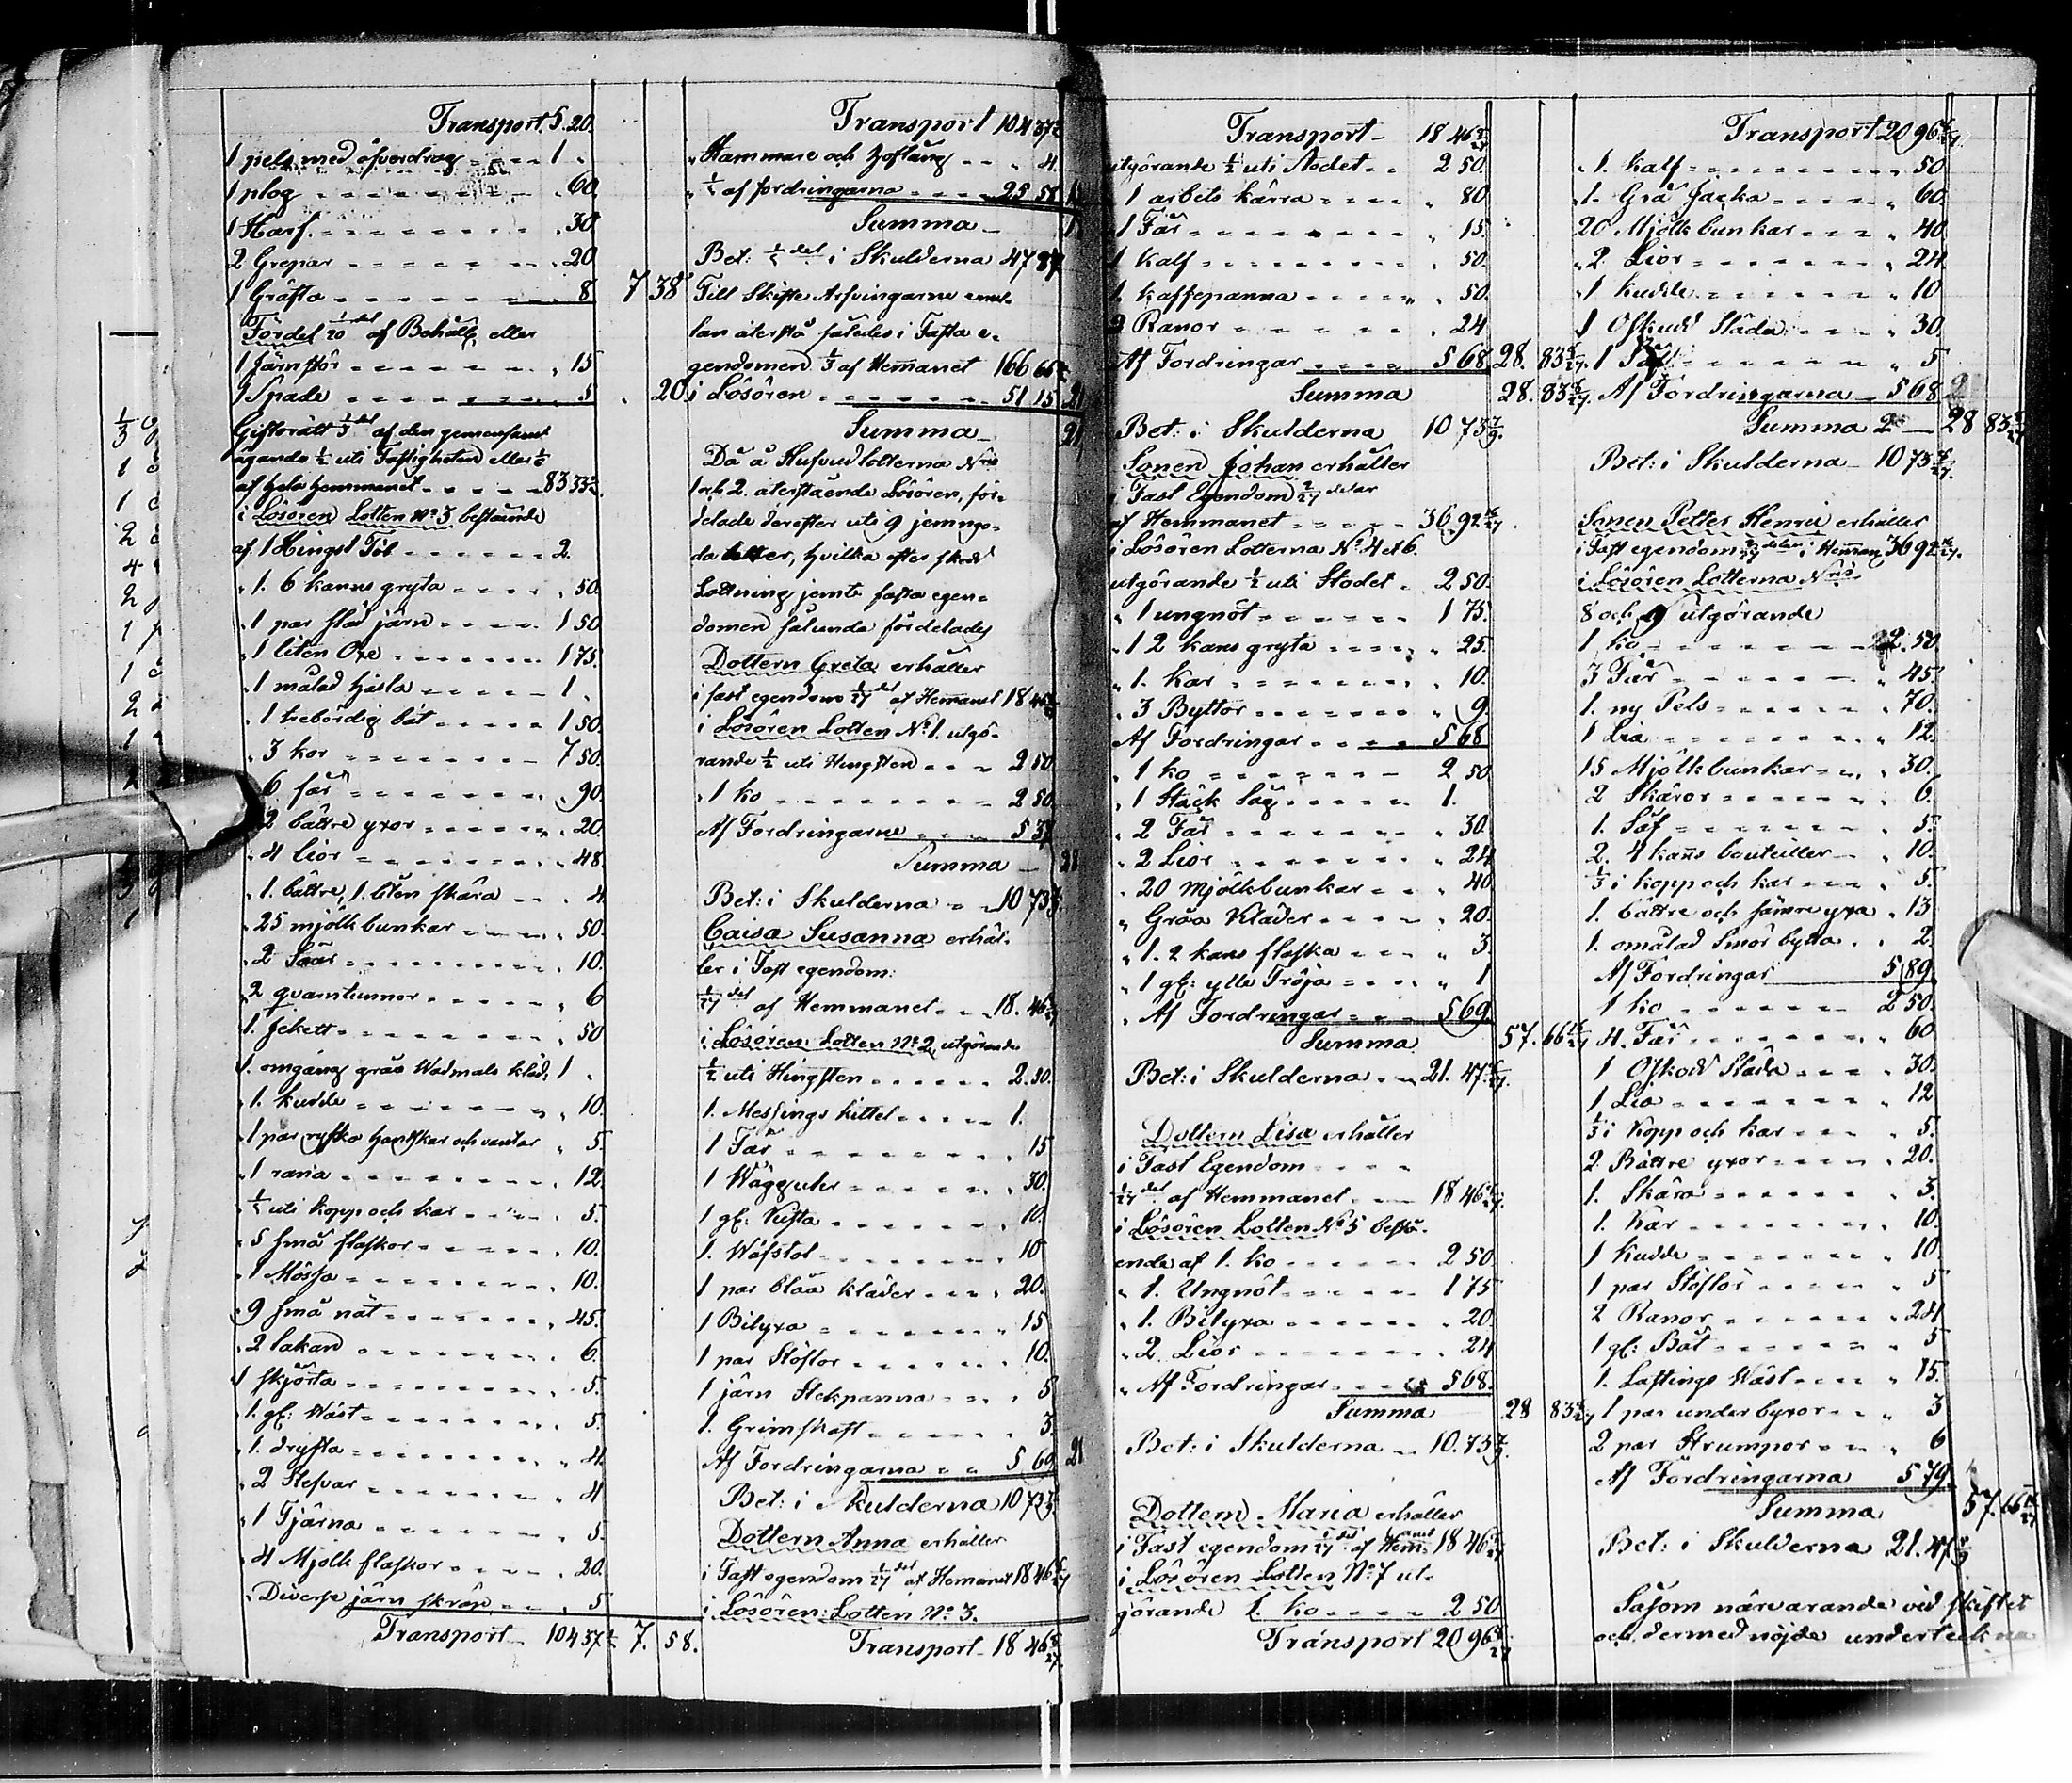 Transport 5. 20.
1 pels med öfverdrag 1.
1 plog 60.
1 Harf 30.
2 Grepar 20
1 Gräfta 8 7 38
Fördel 1/20 del af Behålln eller
1 Järnstör 15
1 Spade 5 20
Giftorätt 1/3 del af den gemensamt
ägande 1/2 uti Fastigheten eller 1/6
af hela hemmanet 83 33 1/3
i Lösören Lotten No 3 bestående
af 1 Hingst Föl 2.
1. 6 kanns gryta 50.
1 par släd järn 1 50
1 liten Oxe 1 75.
1 målad hjasla 1.
1 trebördig båt 1 50.
3 kor 7 50.
6 får 90.
2 bättre yxor 20.
4 lior 48.
1. bättre, 1. liten skära 4
25 mjölkbunkar 50.
2 Såar 10.
2 qvarntunnor 6
1. jekett 50
1. omgång gråa Wadmals kläd. 1.
1. kudde 10.
1 par ryska handskar och vantar 5.
1 rana 12.
1/2 uti kopp och kar 5.
5 små flaskor 10.
1 Mössa 10.
9 små nät 45.
2 lakan 6.
1 skjorta 5.
1. gl: Wäst 5.
1. dryfta 4.
2 Stefvar 4
1 Tjärna 5.
4 Mjölk flaskor 20.
Diverse järn skräp 5
Transport 104 37 1/2 7. 58.
Transport 104 37 1/2
Hammare och hoftång 4.
1/2 af fordringarna 25 58
Summa
Bet: del i Skulderna 47 87
Till Skifte Arfvingarne emel-
lan återstå således i Fasta e-
gendomen 1/3 af Hemanet 166 66
i Lösören 51 15 21
Summa 21
Då å Hufvudlotterna Nris
1 och 2. återstående Lösören, för-
delade derefter uti 9 jemngo-
da lotter, hvilka efter skedd
Lottning jemte fasta egen-
domen sålunda fördelades
Dottern Greta erhåller
i fast egendom 1/27 del af Hemanet 18 46
i Lösören Lotten No 1. utgö-
rande 1/2 uti Hingsten 2 50
1 ko 2 50.
Af Fordringarne 5 37
Summa 21
Bet: i Skulderna 10 73
Caisa Susanna erhål-
ler i Fast egendom:
1/27 del af Hemmanet 18. 46
i Lösören Lotten No 2, utgörande
1/2 uti Hingsten 2. 50.
1. Messings kittel 1.
1 Får 15
1 Wägguhr 30.
1 gl: Kista 10.
1. Wäfstol 10
1 par blåa kläder 20.
1 Bilyxa 15
1 par Stöflor 10.
1 järn Stekpanna 5
1. Grimskaft 3.
Af Fordringarna 5 69 21
Bet: i Skulderna 10 73
Dottern Anna erhåller
i Fast egendom 1/27 del af Hemanet 18 46
i Lösören: Lotten No 3.
Transport 18 46 8/27.
Transport 18 46
utgörande 1/2 uti Stodet 2 50.
1 arbets kärra 80
1 Får 15.
1 Kalf 50.
1. Kaffepanna 50.
2 Ranor 24
Af Fordringar 5 68 28. 83
Summa 28. 83
Bet: i Skulderna 10 73 7/9.
Sonen Johan erhåller
i Fast Egendom 2/27 delar
af Hemmanet 36 92
i Lösören Lotterna No 4 et 6.
utgörande 1/2 uti Stodet 2 50.
1 ungnöt 1 75.
1 2 kans gryta 25.
1. Kar 10.
3 Byttor 9.
Af Fordringar 5 68
1 ko 2 50.
1 Stäck Såg 1.
2 Får 30.
2 Lior 24
20 mjölkbunkar 40
Gråa Kläder 20.
1. 2 kans flaska 3.
1 gl: ylle Tröja 1
Af Fordringar 5 69.
Summa 57. 66
Bet: i Skulderna 21. 47
Dottern Lisa erhåller
i Fast Egendom
1/27 del af Hemmanet 18 46
i Lösören Lotten No 5 bestå-
ende af 1. ko 2 50
1. Ungnöt 1 75
1. Bilyxa 20
2 Lior 24
Af Fordringar 5 68.
Summa 28 83
Bet: i Skulderna 10. 73
Dottern Maria erhåller
i Fast egendom 1/27 del af Hem: 18 46
i Lösören Lotten No 7 ut-
görande 1. ko 2 50
Transport 20 96
Transport 20 96
1. Kalf 50
1. Grå Jacka 60.
20 Mjölkbunkar 40
2 Lior 24
1 kudde 10
1 Oskodd Släda 30
1 5
Af Fordringarna 5 68
Summa 28 83
Bet: i Skulderna 10 73
Sonen Petter Henric erhåller
i Fast egendom 2/27 delar i Heman 36 92
i Lösören Lotterna Nris
8 och 9 utgörande
1 ko 2. 50.
3 Får 45.
1. ny Pels 70.
1 Lia 12.
15 Mjölkbunkar 30.
2 Skäror 6.
1. Såf 5.
2. 4 kanns bouteiller 10.
1/3 i kopp och kar 5.
1. bättre och sämre yxa 13
1. omålad Smör bytta 2.
Af Fordringar 5 89
1 ko 2 50.
4. Får 60
1 Oskodd Släda 30.
1 Lia 12
1/3 i Kopp och kar 5.
2 Bättre yxor 20.
1. Skära 3.
1. Kar 10.
1 Kudde 10
1 par Stöflor 5
2 Ranor 24
1 gl: Båt 5
1. Lastings Wäst 15.
1 par underbyxor 3
2 par Strumpor 6
Af Fordringarna 5 79.
Summa 57. 66
Bet: i Skulderna 21. 47
Såsom närvarande vid skiftet
och dermed nöjde underteckna